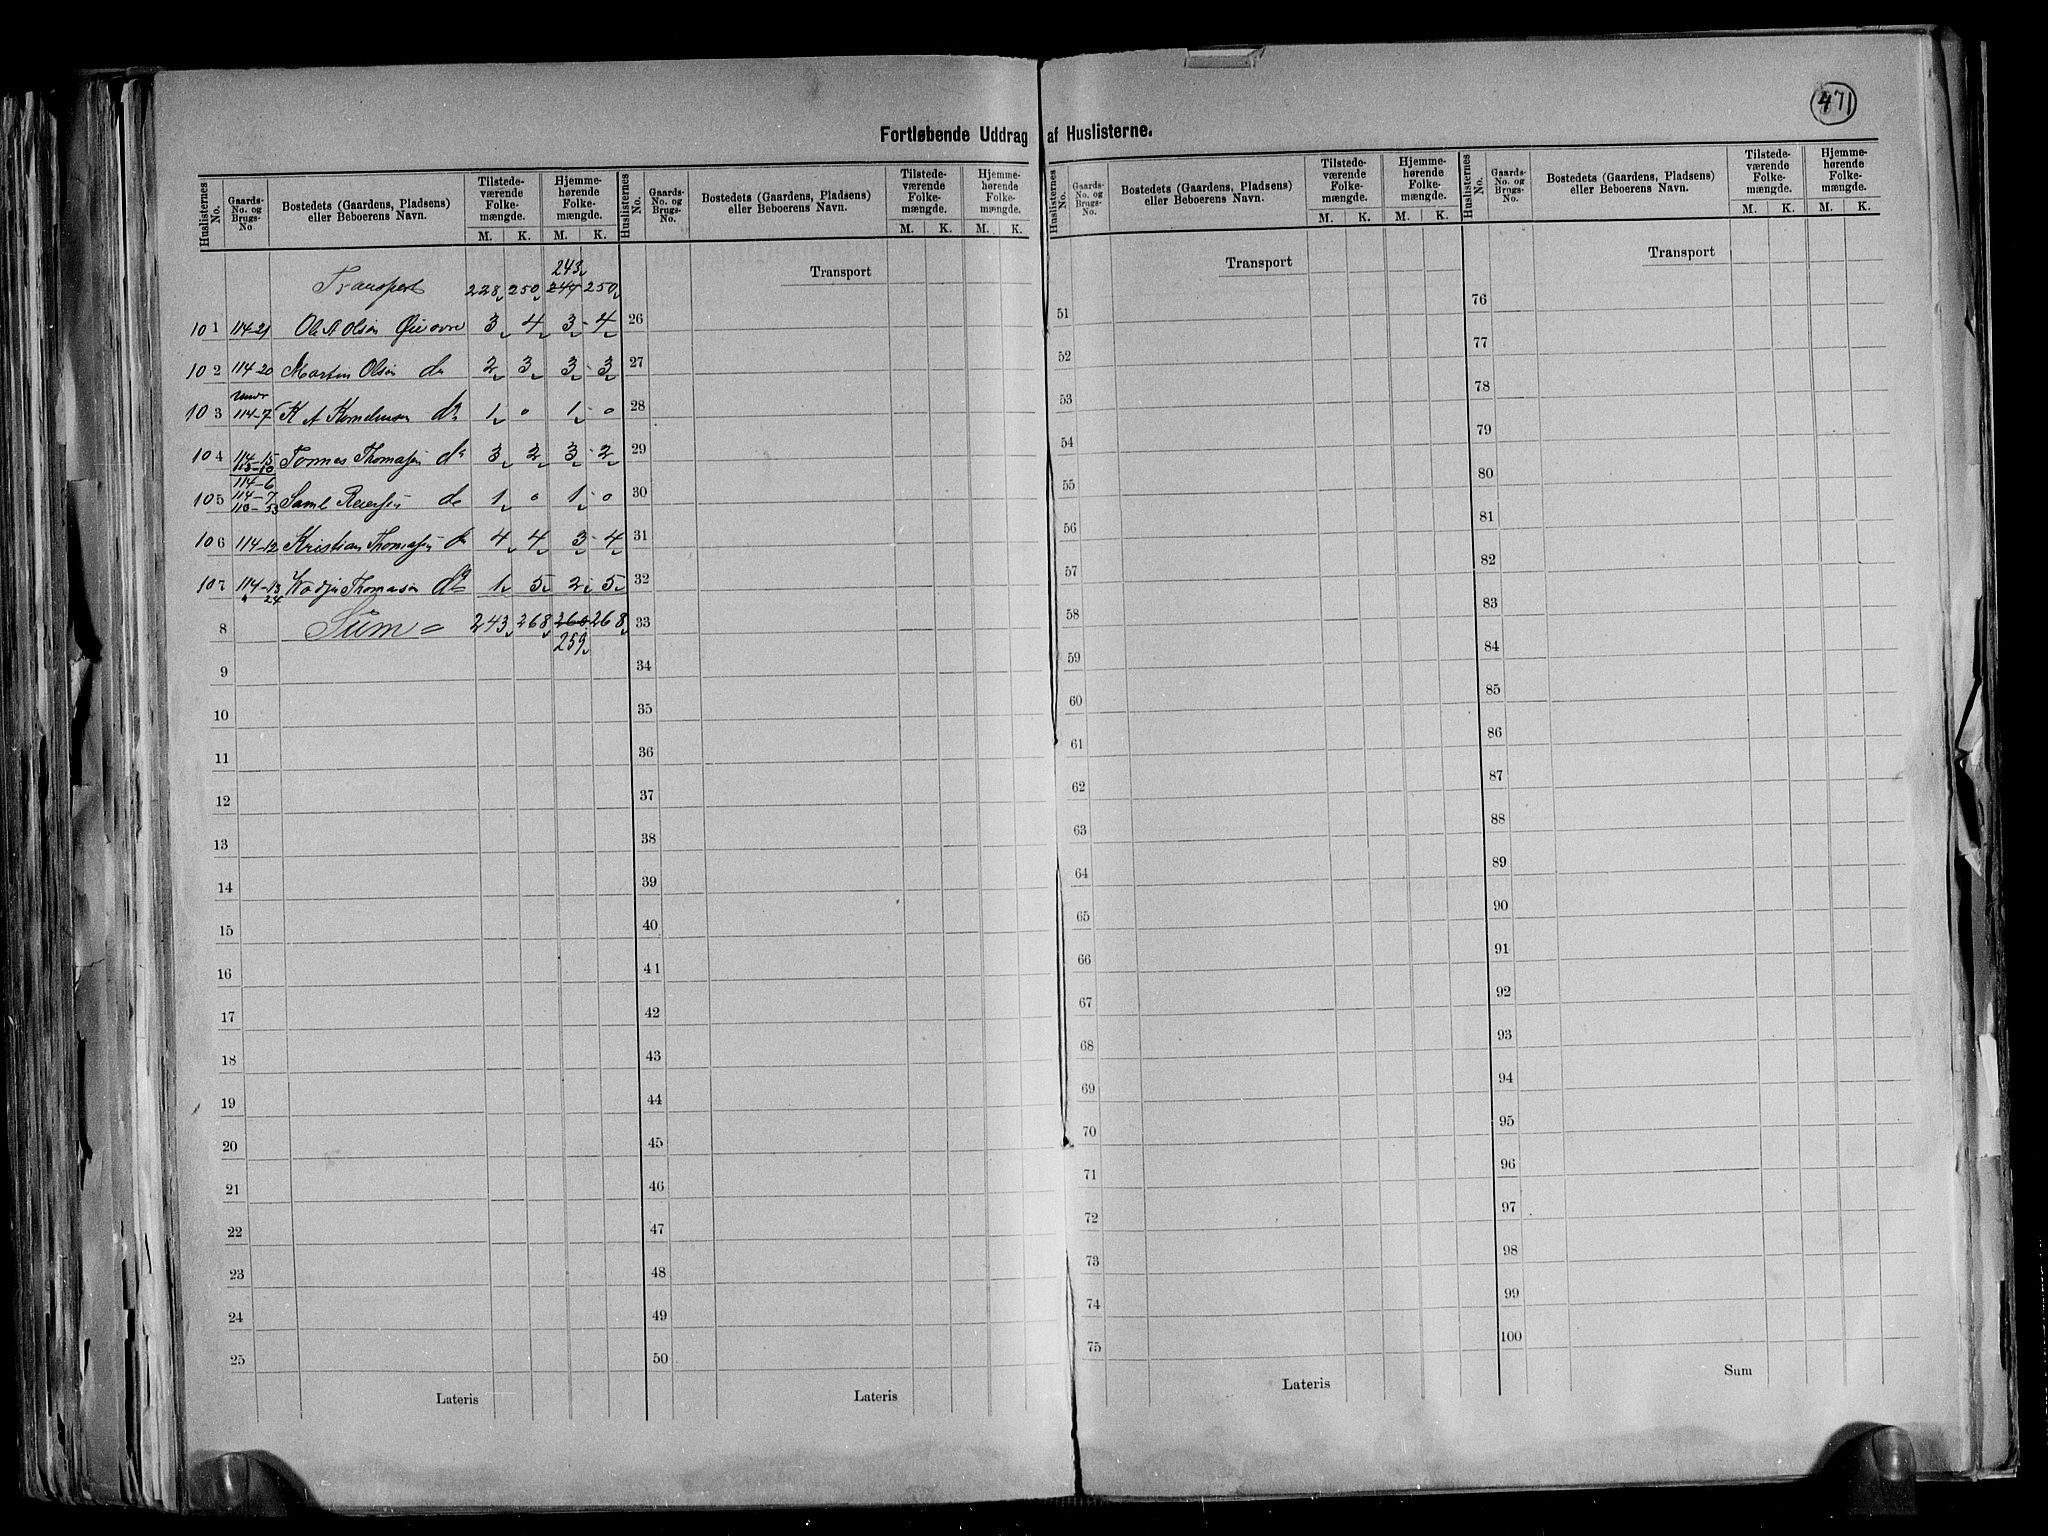 471
Fortløbende Uddrag af Huslisterne.
Huslisternes No. Gaards-No. og Brugs-No Bostedets (Gaardens, Pladsens) eller Beboerens Navn. Tilstedeværende Folkemængde. M. K. Hjemmehørende Folkemængde. M. K.
Transport 228 250 243 244 250
101 114-21 Ole A Olsen Øie øvre 3 4 3 - 4
102 114-20 Martin Olsen do 2 3 3 - 3
103 114-7 K A Kornelius do 1 0 1 - 0
104 114-15 Tønnes Thomasen do 3 2 3 - 2
105 114-6 114-7 Saml Reiersen do 1 0 1 - 0
106 114-12 Kristian Thomasen do 4 4 3 - 4
107 114-13 24 Thomasen do 1 5 2 5
8 Sum = 243 268 260 268
259
9
10
11
12
13
14
15
16
17
18
19
20
21
22
23
24
25
Lateris
Huslisternes No. Gaards-No. og Brugs-No. Bostedets (Gaardens, Pladsens) eller Beboerens Navn. Tilstedeværende Folkemængde. M. K. Hjemmehørende Folkemængde. M. K.
Transport
26
27
28
29
30
31
32
33
34
35
36
37
38
39
40
41
42
43
44
45
46
47
48
49
50
Lateris
Huslisternes No. Gaards-No. og Brugs-No. Bostedets (Gaardens, Pladsens) eller Beboerens Navn. Tilstedeværende Folkemængde. M. K. Hjemmehørende Folkemængde. M. K.
Transport
51
52
53
54
55
56
57
58
59
60
61
62
63
64
65
66
67
68
69
70
71
72
73
74
75
Lateris
Huslisternes No. Gaards-No. og Brugs-No. Bostedets (Gaardens, Pladsens) eller Beboerens Navn. Tilstedeværende Folkemængde. M. K. Hjemmehørende Folkemængde. M. K.
Transport
76
77
78
79
80
81
82
83
84
85
86
87
88
89
90
91
92
93
94
95
96
97
98
99
100
Sum